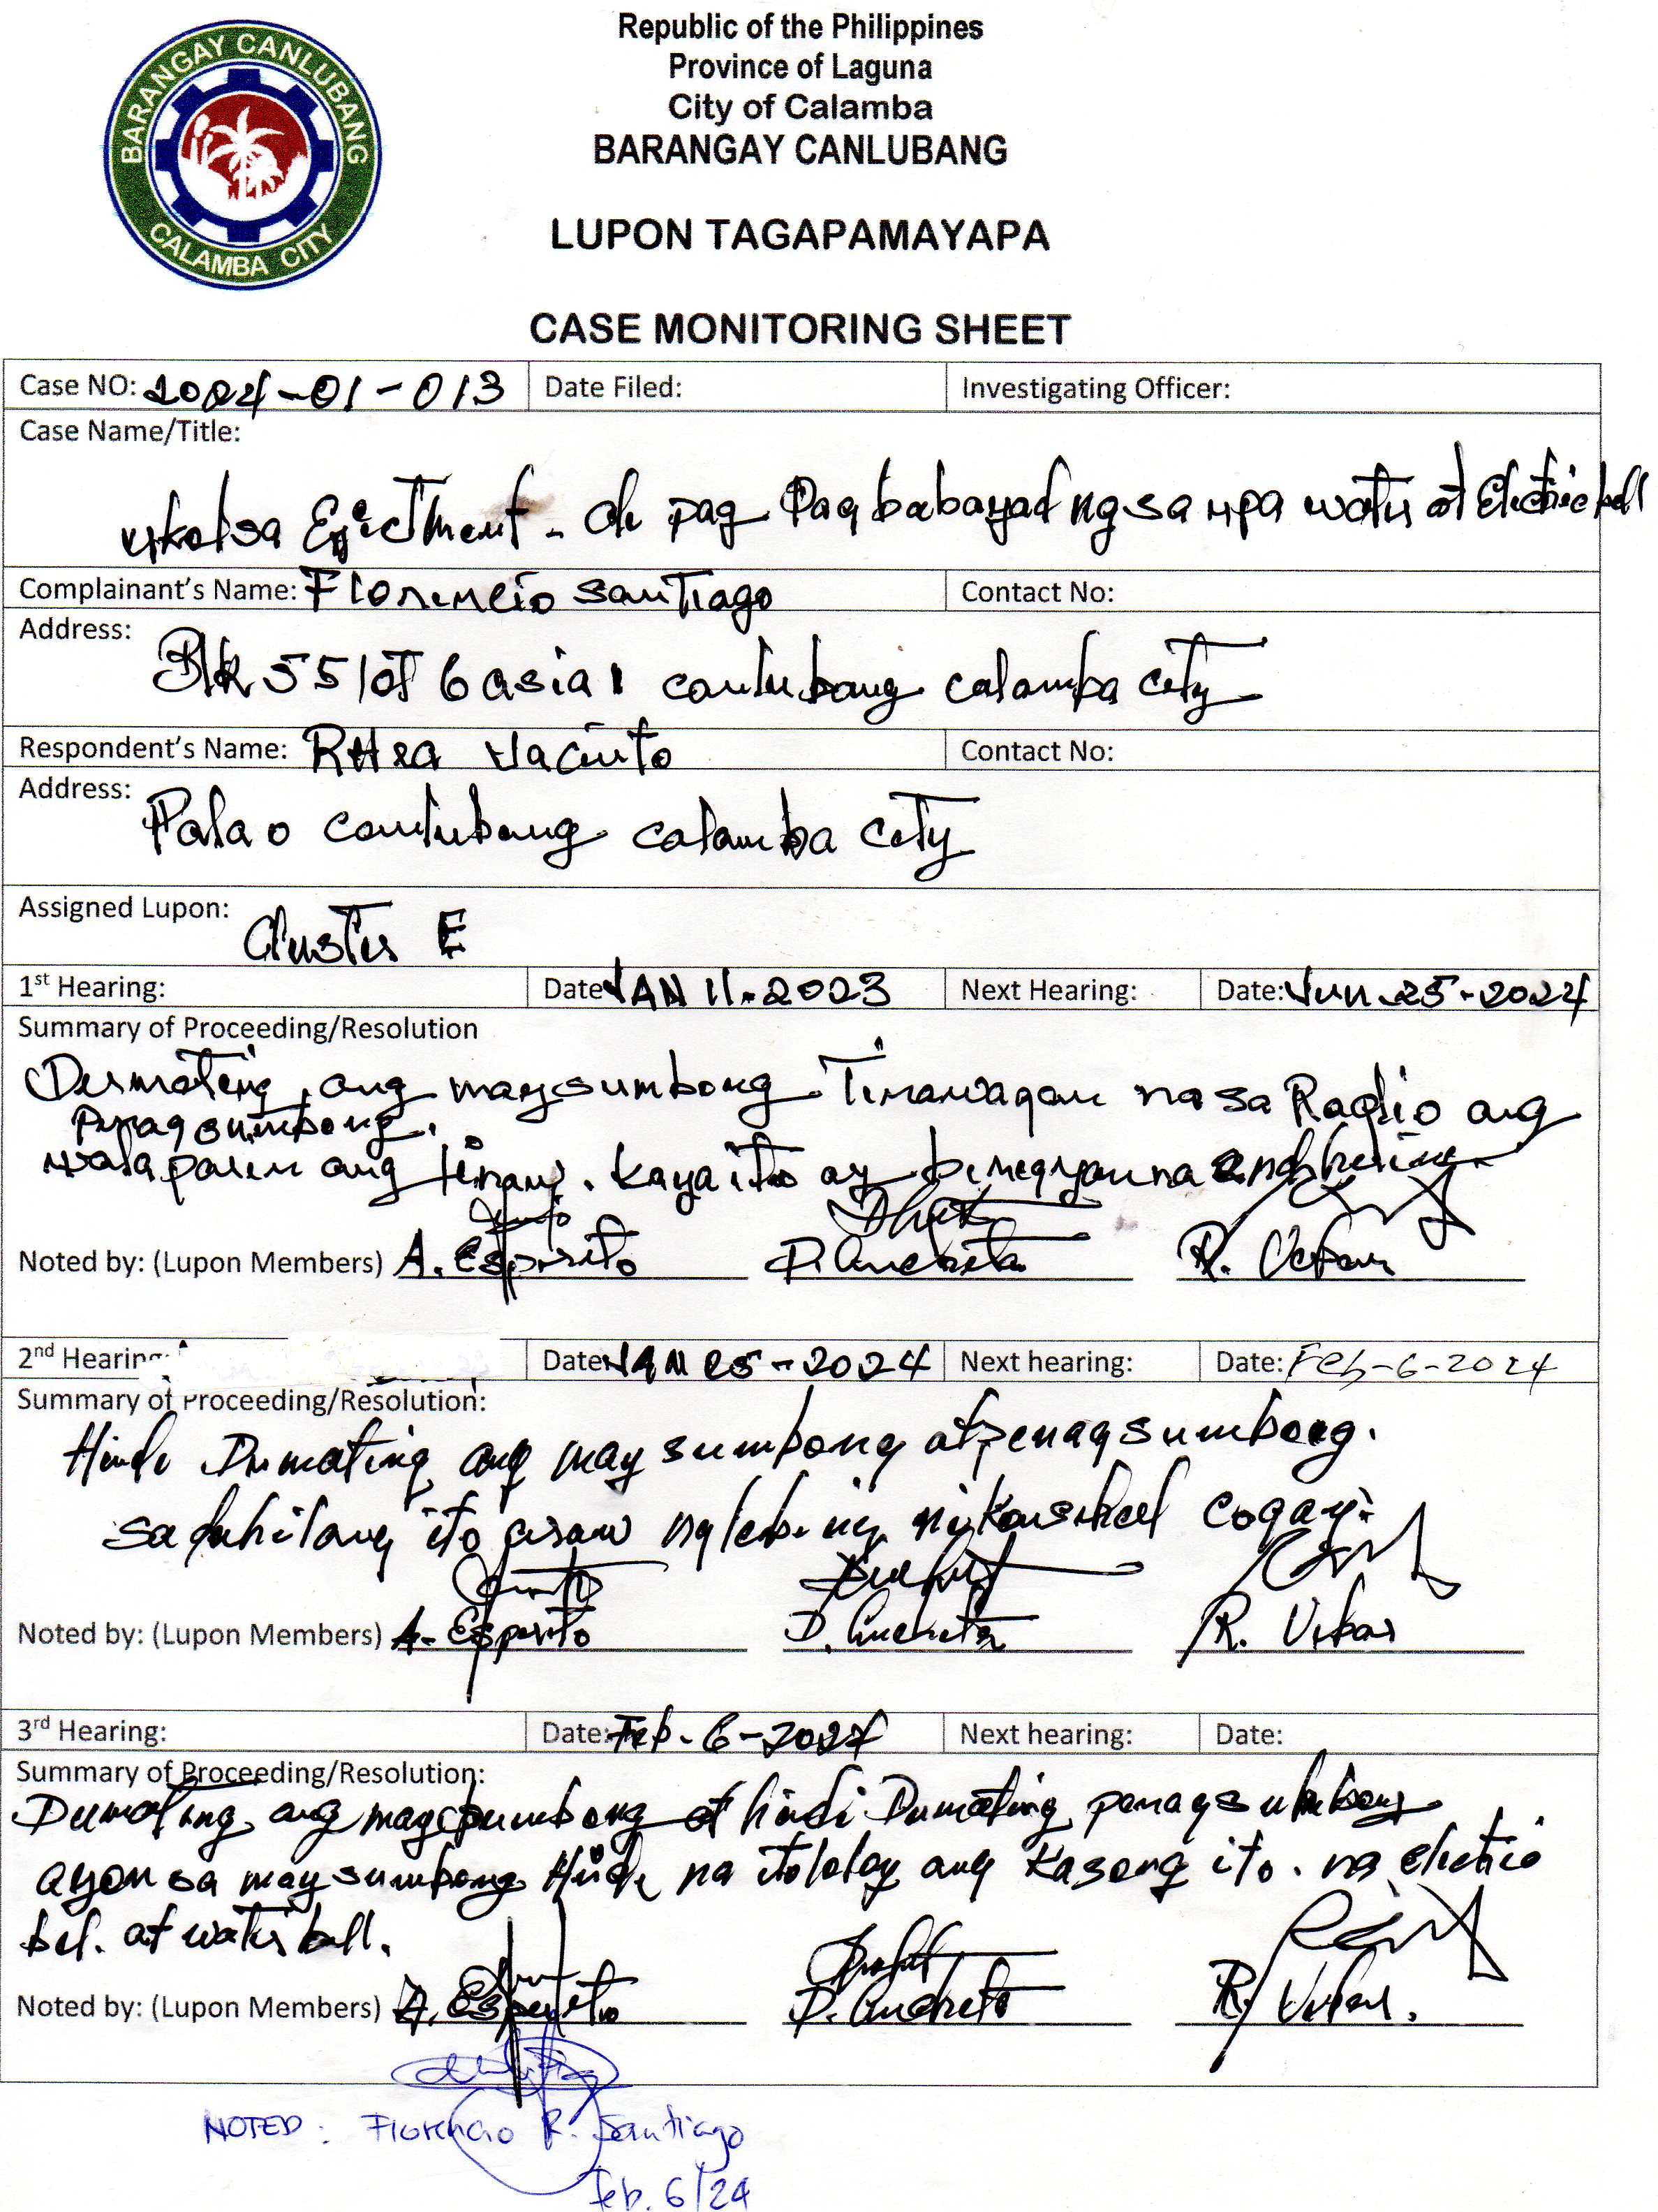 BARANGAY CANLUBANG
CALAMBA CITY
Republic of the Philippines
Province of Laguna
City of Calamba
BARANGAY CANLUBANG
LUPON TAGAPAMAYAPA
CASE MONITORING SHEET
Case NO: 2024-01-013 Date Filed: Investigating Officer:
Case Name/Title:
ukol sa Ejectment - di pag Pagbabayad ng sa upa water at Electric bell
Complainant's Name: Florencio Santiago Contact No:
Address:
Blk 55 lot 6 asia 1 canlubang calamba city
Respondent's Name: RHea Jacinto Contact No:
Address:
Palao canlubang calamba city
Assigned Lupon: Cluster E
1st Hearing: Date JAN 11-2023 Next Hearing: Date: Jun-25-2024
Summary of Proceeding/Resolution
Dumating ang maysumbong Tinawagan na sa Radio ang
Pinagsumbong.
wala paren ang . Kaya ito ay na 2nd
Noted by: (Lupon Members) A. Espirito D. Ancheta R.
2nd Hearing: Date JAN 25-2024 Next hearing: Date: Feb-6-2024
Summary of Proceeding/Resolution:
Hinde Dumating ang may sumbong at penagsumbong.
sa duhilang ito araw ng lebing ni cogay.
Noted by: (Lupon Members) A. Esperito D. Ancheta R.
3rd Hearing: Date: Feb-6-2024 Next hearing: Date:
Summary of Proceeding/Resolution:
Dumating ang magsumbong at hindi Dumating penagsumbong
ayon sa may sumbong Hinde na itololoy ang Kasong ito. na electric
bel. at water bell.
Noted by: (Lupon Members) A. Esperito D. Ancheta R.
NOTED: Florencio R. Santiago
Feb. 6/24